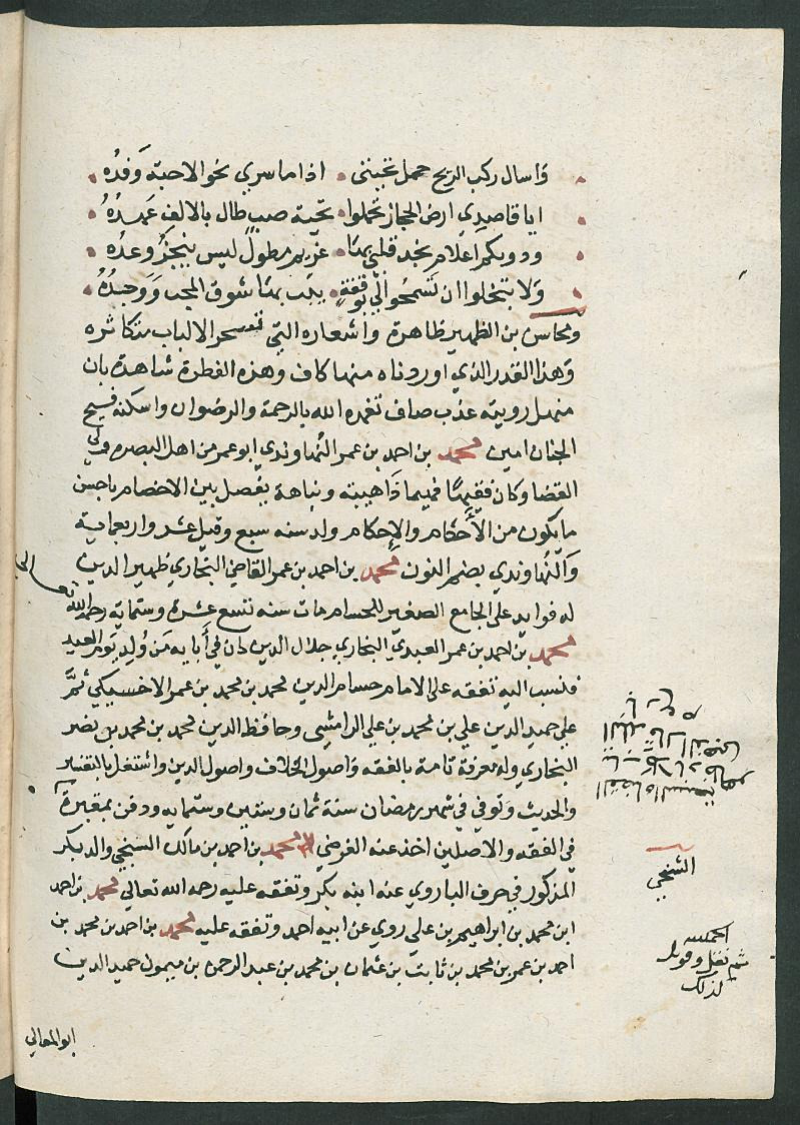 واسال ركب الريح حمل تحيتى • اذا ما سري نحو الاحبة وَفدُه
ايا قاصدي ارض الحجاز تحملوا • تحية صب طال بالالف عَهدُهُ
ودونكم اعلام نجد قلبي بها • غريم مطول ليس ينجز وعدُه
ولا تبخلوا ان تسمحوا لي بوقفة • يبث بها شوق المحب ووجدُهُ
ومحاسن بن الظهير ظاهرة واشعاره التي تسحر الالباب متكاثره
وهذا القدر الذي اوردناه منها كاف وهذه القطرة شاهدة بان
منهل رويته عذب صاف تغمده الله بالرحمة والرضوان واسكنه فسيح
الجنان امين محمد بن احمد بن عمر النهاوندي ابو عمر من اهل البصره ولي
القضا وكان فقيها فهيما ذا هيبته ونباهة يفصل بين الاخصام باحسن
ما يكون من الأحكام والإحكام ولد سنه سبع وقيل عشر واربعماية
والنهاوندي بضم النون محمد بن احمد بن عمر القاضي البخاري ظهير الدين
له فوايد على الجامع الصغير للحسام مات سنه تسع عشرة وستمايه رحمه الله تعالى
محمد بن احمد بن عمر العبدي البخاري جلال الدين كان في أبايه مَن وُلِد يَوم العيد
فنسب اليه تفقه على الامام حسام الدين محمد بن محمد بن عمر الاخسيكي ثمَّ
علي حميد الدين علي بن محمد بن علي الرامشي وحافظ الدين محمد بن محمد بن نصر
البخاري وله معرفة تامة بالفقه واصول الخلاف واصول الدين واشتغل بالتفسير
والحديث وتوفي في شهر رمضان سنة ثمان وستين وستمايه ودفن بمقبرة
في الفقه والاصلين اخذ عنه الفرضي محمد بن احمد بن مالك السنجي والد بكر
المذكور في حرف الباء روي عنه ابنه بكر وتفقه عليه رحمه الله تعالي محمد بن احمد
ابن محمد بن ابراهيم بن علي روي عن ابيه احمد وتفقه عليه محمد بن احمد بن محمد بن
احمد بن عمر بن محمد بن ثابت بن عثمان بن محمد بن عبد الرحمن بن ميمون حميد الدين
القضاة السبعة
الشنجي
ثم نقل وقوبل
لذلك
ابو المعالي